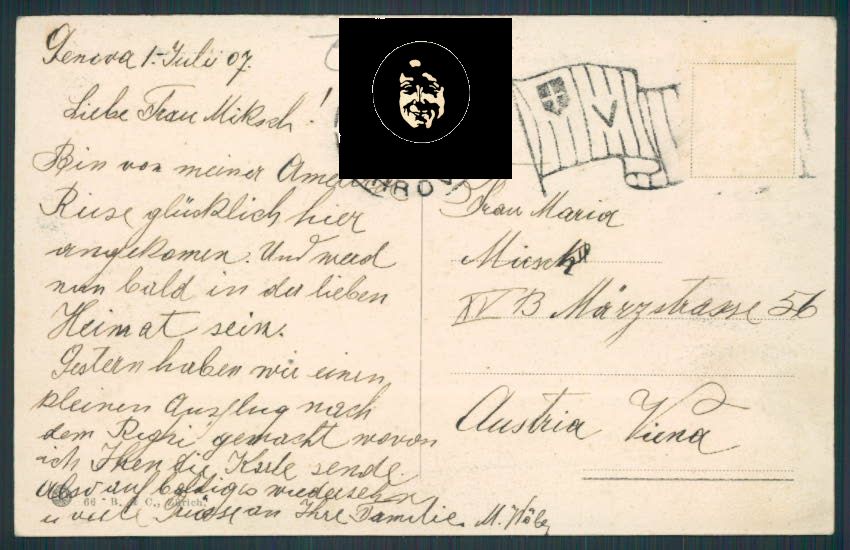 Genova 1. Juli 07.
Liebe Frau Miksch!
Bin von meiner
Reise glücklich hier
angekomen. Und werd
nun bald in der lieben
Heimat sein.
Gestern haben wir einen
kleinen Ausflug nach
dem Rigi gemacht wovon
ich Ihen die Karte sende.
Also auf baldiges wiedersehn
u viele an Ihre Familie. M.
66 B. & C., Zürich.
V
Frau Maria
XV B Märzstrasse 56
Austria Viena